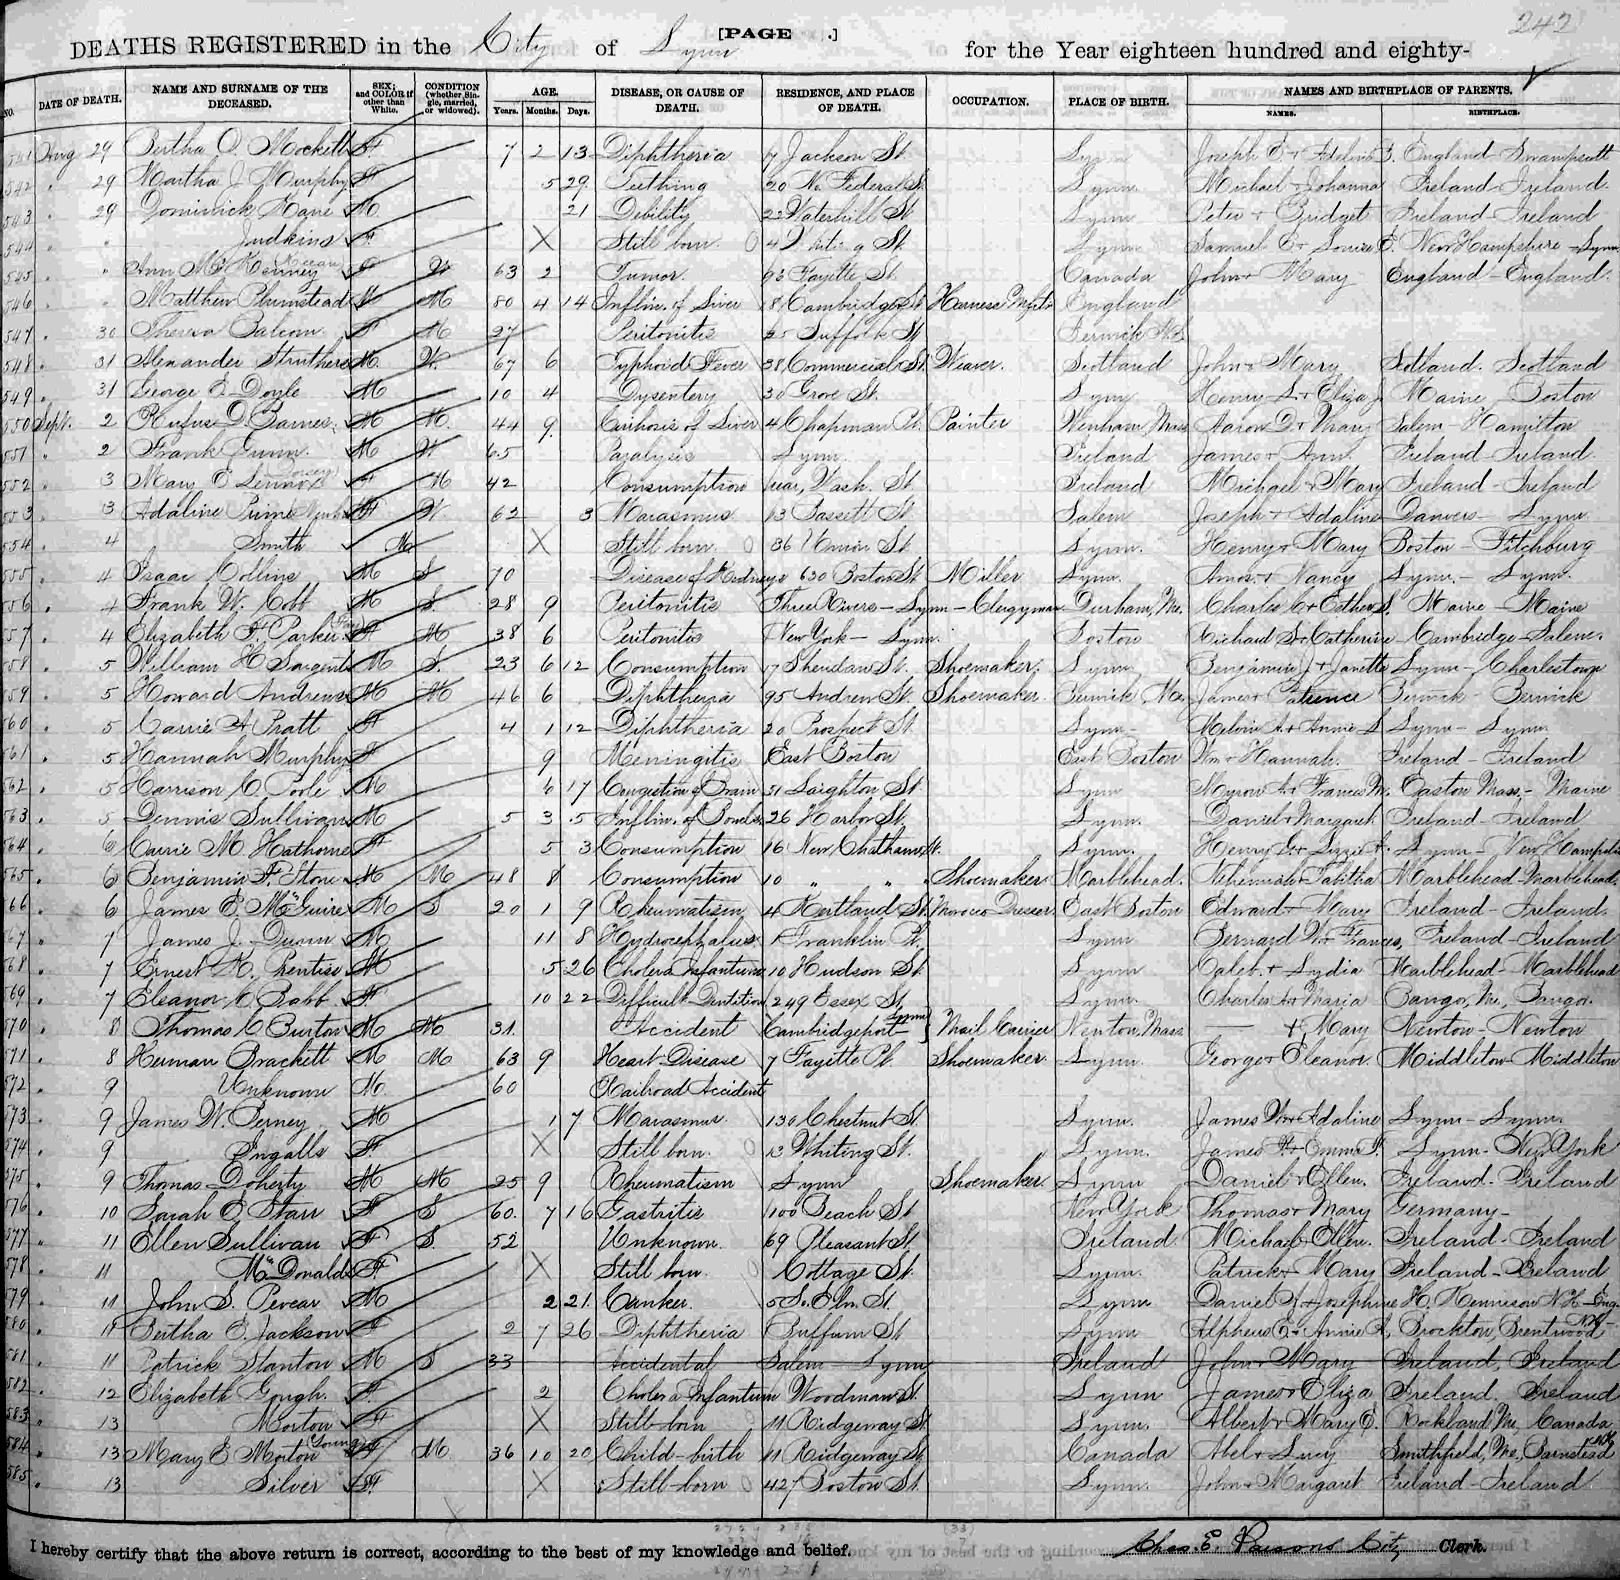 242
[PAGE .]
DEATHS REGISTERED in the City of Lynn for the Year eighteen hundred and eighty-
NO. DATE OF DEATH. NAME AND SURNAME OF THE DECEASED. SEX; and COLOR if other than White. CONDITION (whether Single, married, or widowed). AGE. Years. Months. Days. DISEASE, OR CAUSE OF DEATH. RESIDENCE, AND PLACE OF DEATH. OCCUPATION. PLACE OF BIRTH. NAMES AND BIRTHPLACE OF PARENTS. NAMES. BIRTHPLACE.
541 Aug 29 Bertha O. F. 7 2 13 Diphtheria 7 Jackson St. Lynn Joseph E. + England Swampscott
542 " 29 Martha J. Murphy F. 5 29 Teething 20 No. Federal St. Lynn Michael + Johanna Ireland-Ireland.
543 " 29 Dominick Kane M. 21 Debility 22 Waterhill St. Lynn Peter + Bridget Ireland-Ireland
544 " " Judkins F. X Still born. Lynn Samuel E + Louisa E. New Hampshire-Lynn
545 " Ann F. W. 63 2 Tumor. 93 Fayette St. Canada John + Mary England-England.
546 " Matthew Plumstead M. M 80 4 14 Inflm. of Liver 18 Cambridge St. Harness England
547 " 30 Theresa Balcom. F. M 27 Peritonitis 25 Suffolk St
548 " 31 Alexander Struthers M. W. 67 6 Typhoid Fever 38 Commercial St. Weaver. Scotland John + Mary Scotland. Scotland
549 " 31 George E. Doyle M 10 4 Dysentery 30 Grove St. Lynn Henry S. + Eliza J. Maine, Boston
550 Sept. 2 Rufus D. Barnes M M. 44 9. Cirrhosis of Liver 4 Chapman Pl. Painter Wenham Mass Aaron D. + Mary Salem-Hamilton
551 " 2 Frank Gunn. M W. 65 Paralysis Lynn. Ireland James + Ann. Ireland-Ireland.
552 " 3 Mary E. Lennox F M 42 Consumption rear, Wash. St. Ireland Michael + Mary Ireland-Ireland
553 " 3 Adaline Prime F W. 62 3 Marasmus. 13 Bassett St. Salem Joseph + Adaline Danvers-Lynn
554 " 4 Smith M. X Still born. 36 Union St. Lynn. Henry + Mary Boston-Fitchburg
555 " 4 Isaac Collins M S 70 Disease of Kidneys 630 Boston St. Miller Lynn. Amos + Nancy Lynn-Lynn.
556 " 4 Frank W. Cobb M S. 28 9 Peritonitis Three Rivers-Lynn-Clergyman Durham, Me. Charles C + Esther S. Maine-Maine
557 " 4 Elizabeth F. Parker F M 38 6 Peritonitis New York-Lynn. Boston Richard S. + Catherine Cambridge-Salem.
558 " 5 William H Sargent M S. 23 6 12 Consumption 17 Sheridan St. Shoemaker. Lynn Benjamin J. + Janette Lynn-Charlestown
559 " 5 Howard Andrews M M 46 6 Diphtheria 95 Andrew St. Shoemaker. Berwick, Me. James + Patience Berwick-Berwick
560 " 5 Carrie A. Pratt F 4 1 12 Diphtheria 20 Prospect St. Lynn- Melvin A. + Annie S Lynn-Lynn
561 " 5 Hannah Murphy F 9 Meningitis East Boston East Boston Wm + Hannah. Ireland-Ireland
562 " 5 Harrison C. Poole M 6 17 Congestion of Brain 31 Laighton St. Lynn Myron A. + Frances M. Easton Mass.-Maine
563 " 5 Dennis Sullivan M 5 3 5 Inflm. of Bowels 26 Harbor St. Lynn. Daniel + Margaret Ireland-Ireland
564 " 6 Carrie M. Hathorne F 5 3 Consumption 16 New Chatham St. Lynn. Henry G. + Lizzie A. Lynn-New Hampshire
565 " 6 Benjamin F. Stone M M 48 8 Consumption 10 " " " Shoemaker. Marblehead. Nehemiah + Tabitha Marblehead-Marblehead.
566 " 6 James E. McGuire M S 20 1 9 Rheumatism 4 Kertland St. Morocco Dresser East Boston Edward + Mary Ireland-Ireland.
567 " 7 James J. Dunn M 11 8 Hydrocephalus Franklin Lynn Bernard W. + Frances, Ireland-Ireland
568 " 7 Ernest K. Prentiss M 5 26 Cholera Infantum 10 Hudson St. Lynn Caleb. + Lydia Marblehead-Marblehead
569 " 7 Eleanor C. Babb F 10 22 Difficult Dentition 249 Essex St. Lynn Charles A. + Maria Bangor, Me., Bangor.
570 " 8 Thomas C. Burton M M. 31. Accident Cambridgeport-Lynn Mail Carrier Newton, Mass. — + Mary Newton-Newton
571 " 8 Herman Brackett M M 63 9 Heart Disease 7 Fayette Pl. Shoemaker Lynn. George + Eleanor. Middleton-Middleton
572 " 9 Unknown M. 60 Railroad Accident
573 " 9 James W. M 1 7 Marasmus 130 Chestnut St. Lynn. James W. + Adaline Lynn-Lynn.
574 " 9 Ingalls F. X Still born. 13 Whiting St. Lynn. James + Emma F. Lynn-New York
575 " 9 Thomas Doherty M M 25 9 Rheumatism Lynn Shoemaker Lynn Daniel + Ellen. Ireland-Ireland
576 " 10 Sarah E. Starr F S 60. 7 16 Gastritis 100 Beach St. New York Thomas + Mary Germany-
577 " 11 Ellen Sullivan F. S. 52 Unknown. 69 Pleasant St. Ireland Michael + Ellen. Ireland-Ireland
578 11 McDonald F. X Still born. Cottage St. Lynn. Patrick + Mary Ireland-Ireland
579 " 11 John S. Pevear M 2 21. Canker. 5 So. Elm. St. Lynn Daniel + Josephine H.
580 " 11 Bertha E. Jackson F 2 7 26 Diphtheria Buffum St Lynn Alpheus E. + Annie A. Brockton, Brentwood N.H.
581 " 11 Patrick Stanton M S 33 Accidental Salem-Lynn Ireland John + Mary Ireland, Ireland
582 " 12 Elizabeth Gough. F. 2 Cholera Infantum Woodman St. Lynn James + Eliza Ireland, Ireland
583 " 13 Morton F X Still-born 11 Ridgeway St. Lynn. Albert + Mary E. Rockland, Me, Canada
584 " 13 Mary E Morton (Young) F M. 36 10 20 Child-birth 11 Ridgeway St. Canada Abel + Lucy Smithfield, Me., Barnstead N.H.
585 " 13 Silver F X Still-born 427 Boston St. Lynn. John + Margaret Ireland-Ireland.
I hereby certify that the above return is correct, according to the best of my knowledge and belief. Chas. E. Parsons City Clerk.